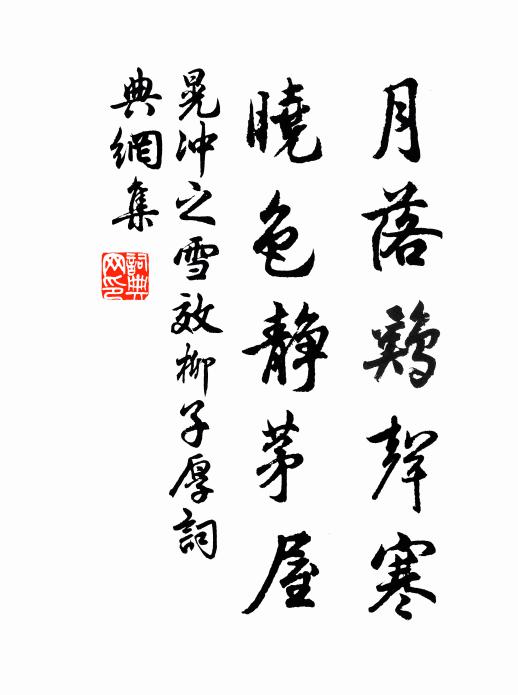 月落鷄聲寒
曉色靜茅屋
晁沖之雪效柳子厚詞
典網集
詞典
网印